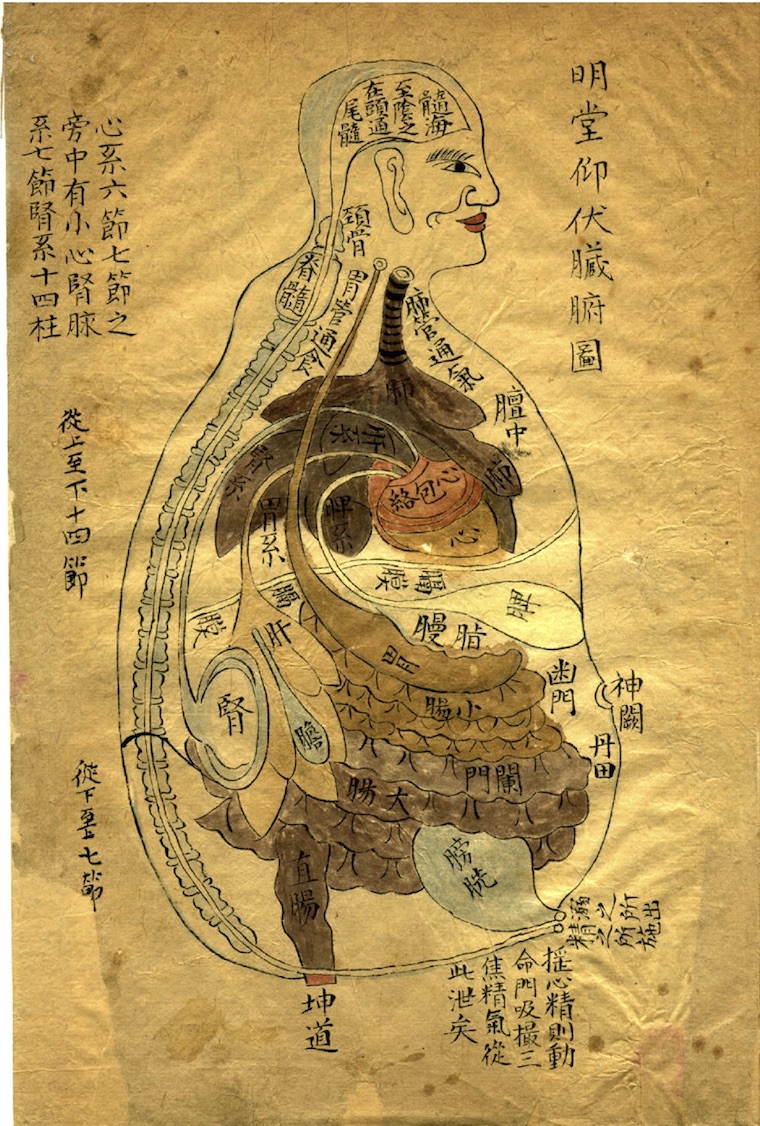 明堂仰伏臟腑圖
髓海
至陰之
在頭通
尾髓
心系六節七節之
旁中有小心腎脉
系七節腎系十四柱
頚骨
脊髓
胃管通食
肺管通氣
膻中
肺
肺
肝系
腎系
心包絡
心
脾系
胃系
從上至下十四節
膈膜
膈膜
脾
脂膜
肝
胃
腎
膽
小腸
幽門
神闕
丹田
闌門
大腸
從下至上七節
膀胱
直腸
溺之所出
精之所施
坤道
搖心精則動
命門吸撮三
焦精氣從
此泄矣